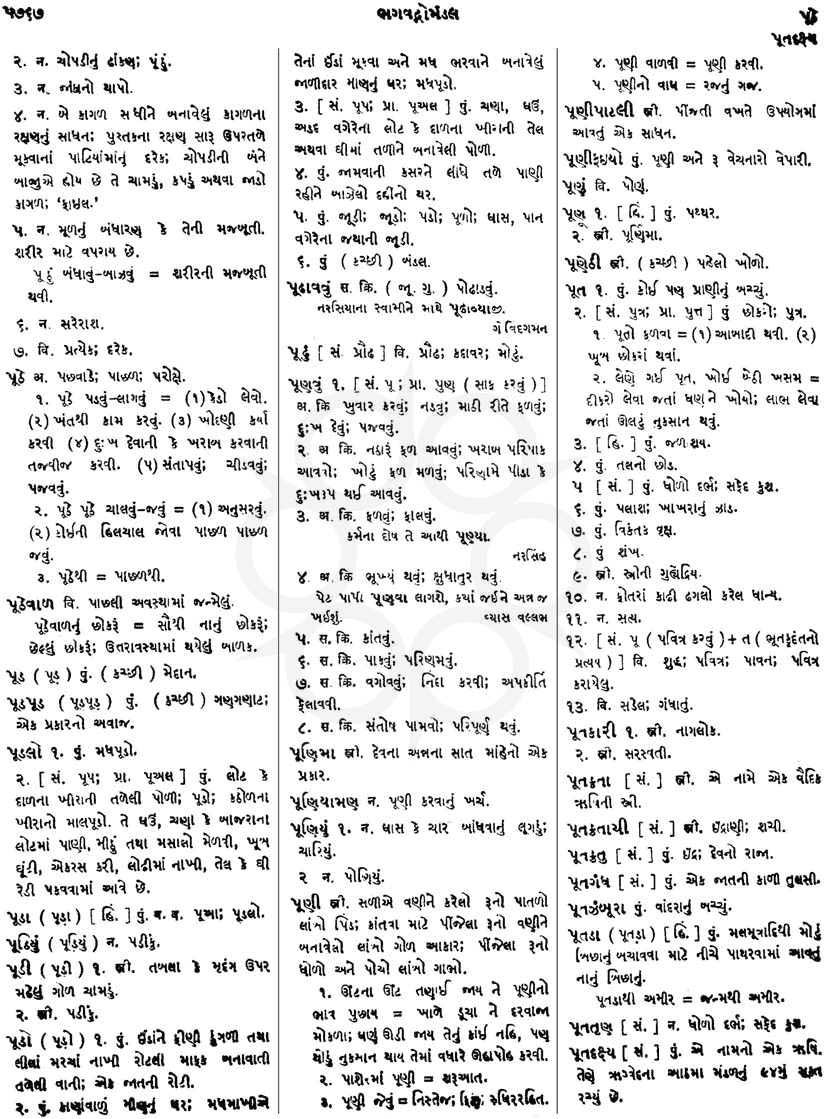 ૫૭૬૭
ભગવદ્ગોમંડલ
પૂઠે
પૂતદક્ષ્ય
૨. ન. ચોપડીનું ઢાંકણ; પૂંઠું.
૩. ન. જાંઘનો થાપો.
૪. ન. બે કાગળ સાંધીને બનાવેલું કાગળના
રક્ષણનું સાધન; પુસ્તકના રક્ષણ સારૂ ઉપરતળે
મૂકવાનાં પાટિયાંમાંનું દરેક; ચોપડીની બંને
બાજુએ હોય છે તે ચામડું, કપડું અથવા જાડો
કાગળ; ‘ફાઇલ.’
૫. ન. મૂળનું બંધારણ કે તેની મજબૂતી.
શરીર માટે વપરાય છે.
પૂઠું બંધાવું-બાઝવું = શરીરની મજબૂતી
થવી.
૬. ન. સરેરાશ.
૭. વિ. પ્રત્યેક; દરેક.
પૂઠે અ. પછવાડે; પાછળ; પરોક્ષે.
૧. પૂઠે પડવું-લાગવું = (૧) કેડો લેવો.
(૨) ખંતથી કામ કરવું. (૩) ખોદણી કર્યા
કરવી (૪) દુઃખ દેવાની કે ખરાબ કરવાની
તજવીજ કરવી. (૫) સંતાપવું; ચીડવવું;
પજવવું.
૨. પૂઠે પૂઠે ચાલવું-જવું = (૧) અનુસરવું.
(૨) કોઈની હિલચાલ જોવા પાછળ પાછળ
જવું.
૩. પૂઠેથી = પાછળથી.
પૂઠેવાળ વિ. પાછલી અવસ્થામાં જન્મેલું.
પૂઠેવાળનું છોકરૂં = સૌથી નાનું છોકરૂં;
છેલ્લું છોકરૂં; ઉત્તરાવસ્થામાં થયેલું બાળક.
પૂડ ( પૂડ઼ ) પું. ( કચ્છી ) મેદાન.
પૂડપૂડ ( પૂડ઼પૂડ઼ ) પું. ( કચ્છી ) ગણગણાટ;
એક પ્રકારનો અવાજ.
પૂડલો ૧. પું. મધપૂડો.
૨. [ સં. પૂપ; પ્રા. પૂઅલ ] પું. લોટ કે
દાળના ખીરાની તળેલી પોળી; પૂડો; કઠોળના
ખીરાનો માલપૂડો. તે ઘઉં, ચણા કે બાજરાના
લોટમાં પાણી, મીઠું તથા મસાલો મેળવી, ખૂબ
ઘૂંટી, એકરસ કરી, લોઢીમાં નાખી, તેલ કે ઘી
રેડી પકવવામાં આવે છે.
પૂડા ( પૂડ઼ા ) [ હિં. ] પું. બ. વ. પૂઆ; પૂડલો.
પૂડિયું ( પૂડ઼િયું ) ન. પડીકું.
પૂડી ( પૂડ઼ી ) ૧. સ્ત્રી. તબલા કે મૃદંગ ઉપર
મઢેલું ગોળ ચામડું.
૨. સ્ત્રી. પડીકું.
પૂડો ( પૂડ઼ો ) ૧. પું. ઈંડાંને ફીણી ડુંગળી તથા
લીલાં મરચાં નાખી રોટલી માફક બનાવાતી
તળેલી વાની; એક જાતની રોટી.
૨. પું. કાણાંવાળું મીણનું ઘર; મધમાખીએ
તેનાં ઈંડાં મૂકવા અને મધ ભરવાને બનાવેલું
જાળીદાર માણનું ઘર; મધપૂડો.
૩. [ સં. પૂપ; પ્રા. પૂઅલ ] પું. ચણા, ઘઉં,
અડદ વગેરેના લોટ કે દાળના ખીરાની તેલ
અથવા ઘીમાં તળીને બનાવેલી પોળી.
૪. પું. જામવાની કસરને લીધે તળે પાણી
રહીને બાઝેલો દહીંનો થર.
૫. પું. જૂડી; જૂડો; પડો; પૂળો; ઘાસ, પાન
વગેરેના જથાની જૂડી.
૬. પું ( કચ્છી ) બંડલ.
પૂઢાવવું સ. ક્રિ. ( જૂ. ગુ. ) પોઢાડવું.
નરસિયાના સ્વામીને માથે પૂઢાવ્યાજી.
ગોવિંદગમન
પૂઢું [ સં. પ્રૌઢ ] વિ. પ્રૌઢ; કદાવર; મોટું.
પૂણવું ૧. [ સં. પૂ; પ્રા. પુણ ( સાફ કરવું ) ]
અ. ક્રિ ખુવાર કરવું; નડવું; માઠી રીતે ફળવું;
દુઃખ દેવું; પજવવું.
૨. અ ક્રિ. નઠારૂં ફળ આવવું; ખરાબ પરિપાક
આવવો; ખોટું ફળ મળવું; પરિણામે પીડા કે
દુઃખરૂપ થઈ આવવું.
૩. અ. ક્રિ. ફળવું; ફાલવું.
કર્મના દોષ તે આથી પૂણ્યા.
નરસિંહ
૪. અ. ક્રિ ભૂખ્યું થવું; ક્ષુધાતુર થવું.
પેટ પાપી પૂણવા લાગશે, ક્યાં જઈને અન્ન જ
ખાઈશું. વ્યાસ વલ્લભ
૫. સ. ક્રિ. કાંતવું.
૬. સ. ક્રિ. પાકવું; પરિણમવું.
૭. સ. ક્રિ. વગોવવું; નિંદા કરવી; અપકીર્તિ
ફેલાવવી.
૮. સ. ક્રિ. સંતોષ પામવો; પરિપૂર્ણ થવું.
પૂણિમા સ્ત્રી. દેવના અન્નના સાત માંહેનો એક
પ્રકાર.
પૂણિયામણ ન. પૂણી કરવાનું ખર્ચ.
પૂણિયું ૧. ન. ઘાસ કે ચાર બાંધવાનું લૂગડું;
ચારિયું.
૨ ન. પોણિયું.
પૂણી સ્ત્રી. સળીએ વણીને કરેલો રૂનો પાતળો
લાંબો પિંડ; કાંતવા માટે પીંજેલા રૂનો વણીને
બનાવેલો લાંબો ગોળ આકાર; પીંજેલા રૂનો
ધોળો અને પોચો લાંબો ગાભો.
૧. ઊંટના ઊંટ તણાઈ જાય ને પૂણીનો
ભાવ પુછાય = ખાળે ડૂચા ને દરવાજા
મોકળા; ઘણું ઊડી જાય તેનું કાંઈ નહિ, પણ
થોડું નુકસાન થાય તેમાં વધારે ઊહાપોહ કરવી.
૨. પાશેરમાં પૂણી = શરૂઆત.
૩. પૂણી જેવું = નિસ્તેજ; ફિક્કું; રુધિરરહિત.
૪. પૂણી વાળવી = પૂણી કરવી.
૫. પૂણીનો વાઘ = રજનું ગજ.
પૂણીપાટલી સ્ત્રી. પીંજતી વખતે ઉપયોગમાં
આવતું એક સાધન.
પૂણીફઇયો પું. પૂણી અને રૂ વેચનારો વેપારી.
પૂણું વિ. પોણું.
પૂણ ૧. [ હિં. ] પું. પથ્થર.
૨. સ્ત્રી. પૂર્ણિમા.
પૂણેઠી સ્ત્રી. ( કચ્છી ) પહેલો ખોળો.
પૂત ૧. પું. કોઈ પણ પ્રાણીનું બચ્ચું.
૨. [ સં. પુત્ર; પ્રા. પુત્ત ] પું છોકરો; પુત્ર.
૧. પૂતો ફળવા = (૧) આબાદી થવી. (૨)
ખૂબ છોકરાં થવાં.
૨. લેણે ગઈ પૂત, ખોઈ બેઠી ખસમ =
દીકરો લેવા જતાં ધણીને ખોયો; લાભ લેવા
જતાં ઊલટું નુકસાન થવું.
૩. [ હિ. ] પું. જળાશય.
૪. પું. તલનો છોડ.
૫ [ સં. ] પું. ધોળો દર્ભ; સફેદ કુશ.
૬. પું. પલાશ; ખાખરાનું ઝાડ.
૭. પું. વિકંતક વૃક્ષ.
૮. પું શંખ.
૯. સ્ત્રી. સ્ત્રીની ગુહ્યેંદ્રિય.
૧૦. ન. ફોતરાં કાઢી ઢગલો કરેલ ધાન્ય.
૧૧. ન. સત્ય.
૧૨. [ સં. પૂ ( પવિત્ર કરવું ) + ત ( ભૂતકૃદંતનો
પ્રત્યય ) ] વિ. શુદ્ધ; પવિત્ર; પાવન; પવિત્ર
કરાયેલું.
૧૩. વિ. સડેલ; ગંધાતું.
પૂતકારી ૧. સ્ત્રી. નાગલોક.
૨. સ્ત્રી. સરસ્વતી.
પૂતક્રતા [ સં. ] સ્ત્રી. એ નામે એક વૈદિક
ઋષિની સ્ત્રી.
પૂતક્રતાયી [ સં. ] સ્ત્રી. ઇંદ્રાણી; શચી.
પૂતક્રતુ [ સં. ] પું. ઇંદ્ર; દેવનો રાજા.
પૂતગંધ [ સં. ] પું. એક જાતની કાળી તુલસી.
પૂતઝંબૂરા પું. વાંદરાનું બચ્ચું.
પૂતડા ( પૂતડ઼ા ) [ હિં. ] પું. મલમૂત્રાદિથી મોટું
બિછાનું બચાવવા માટે નીચે પાથરવામાં આવતું
નાનું બિછાનું.
પૂતડાથી અમીર = જન્મથી અમીર.
પૂતતૃણ [ સં. ] ન. ધોળો દર્ભ; સફેદ કુશ.
પૂતદક્ષ્ય [ સં. ] પું. એ નામનો એક ઋષિ.
તેણે ઋગ્વેદના આઠમા મંડળનું ૯૪મું સૂક્ત
રચ્યું છે.